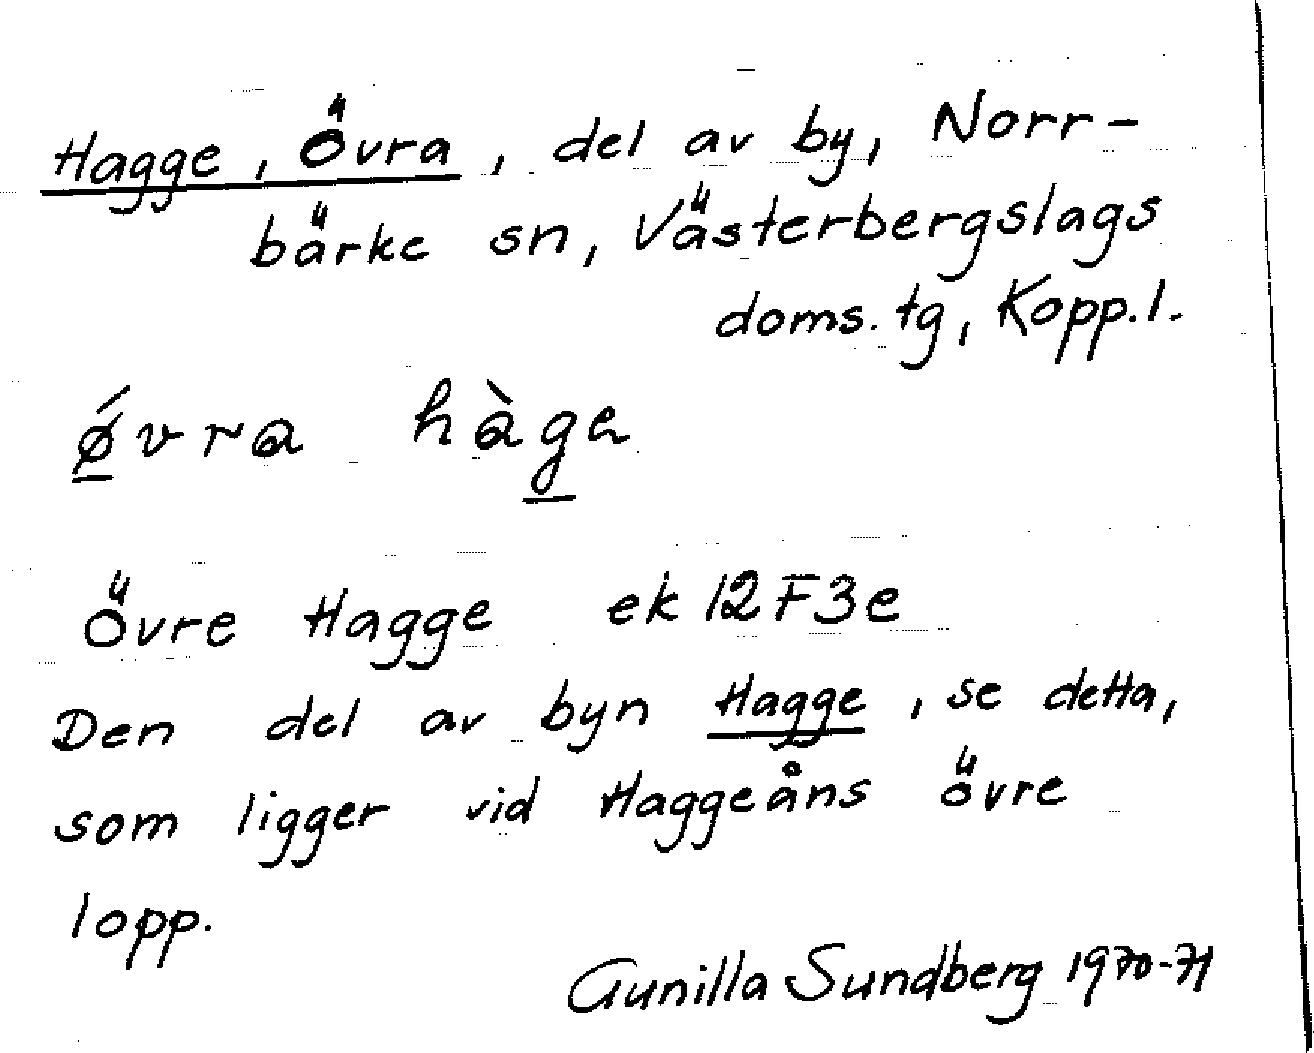 Hagge, Övra, del av by, Norr-
bärke sn, Västerbergslags
doms. tg, Kopp. l.
ǿvra hàge
Övre Hagge ek 12F3e
Den del av byn Hagge, se detta,
som ligger vid Haggeåns övre
lopp.
Gunilla Sundberg 1970-71